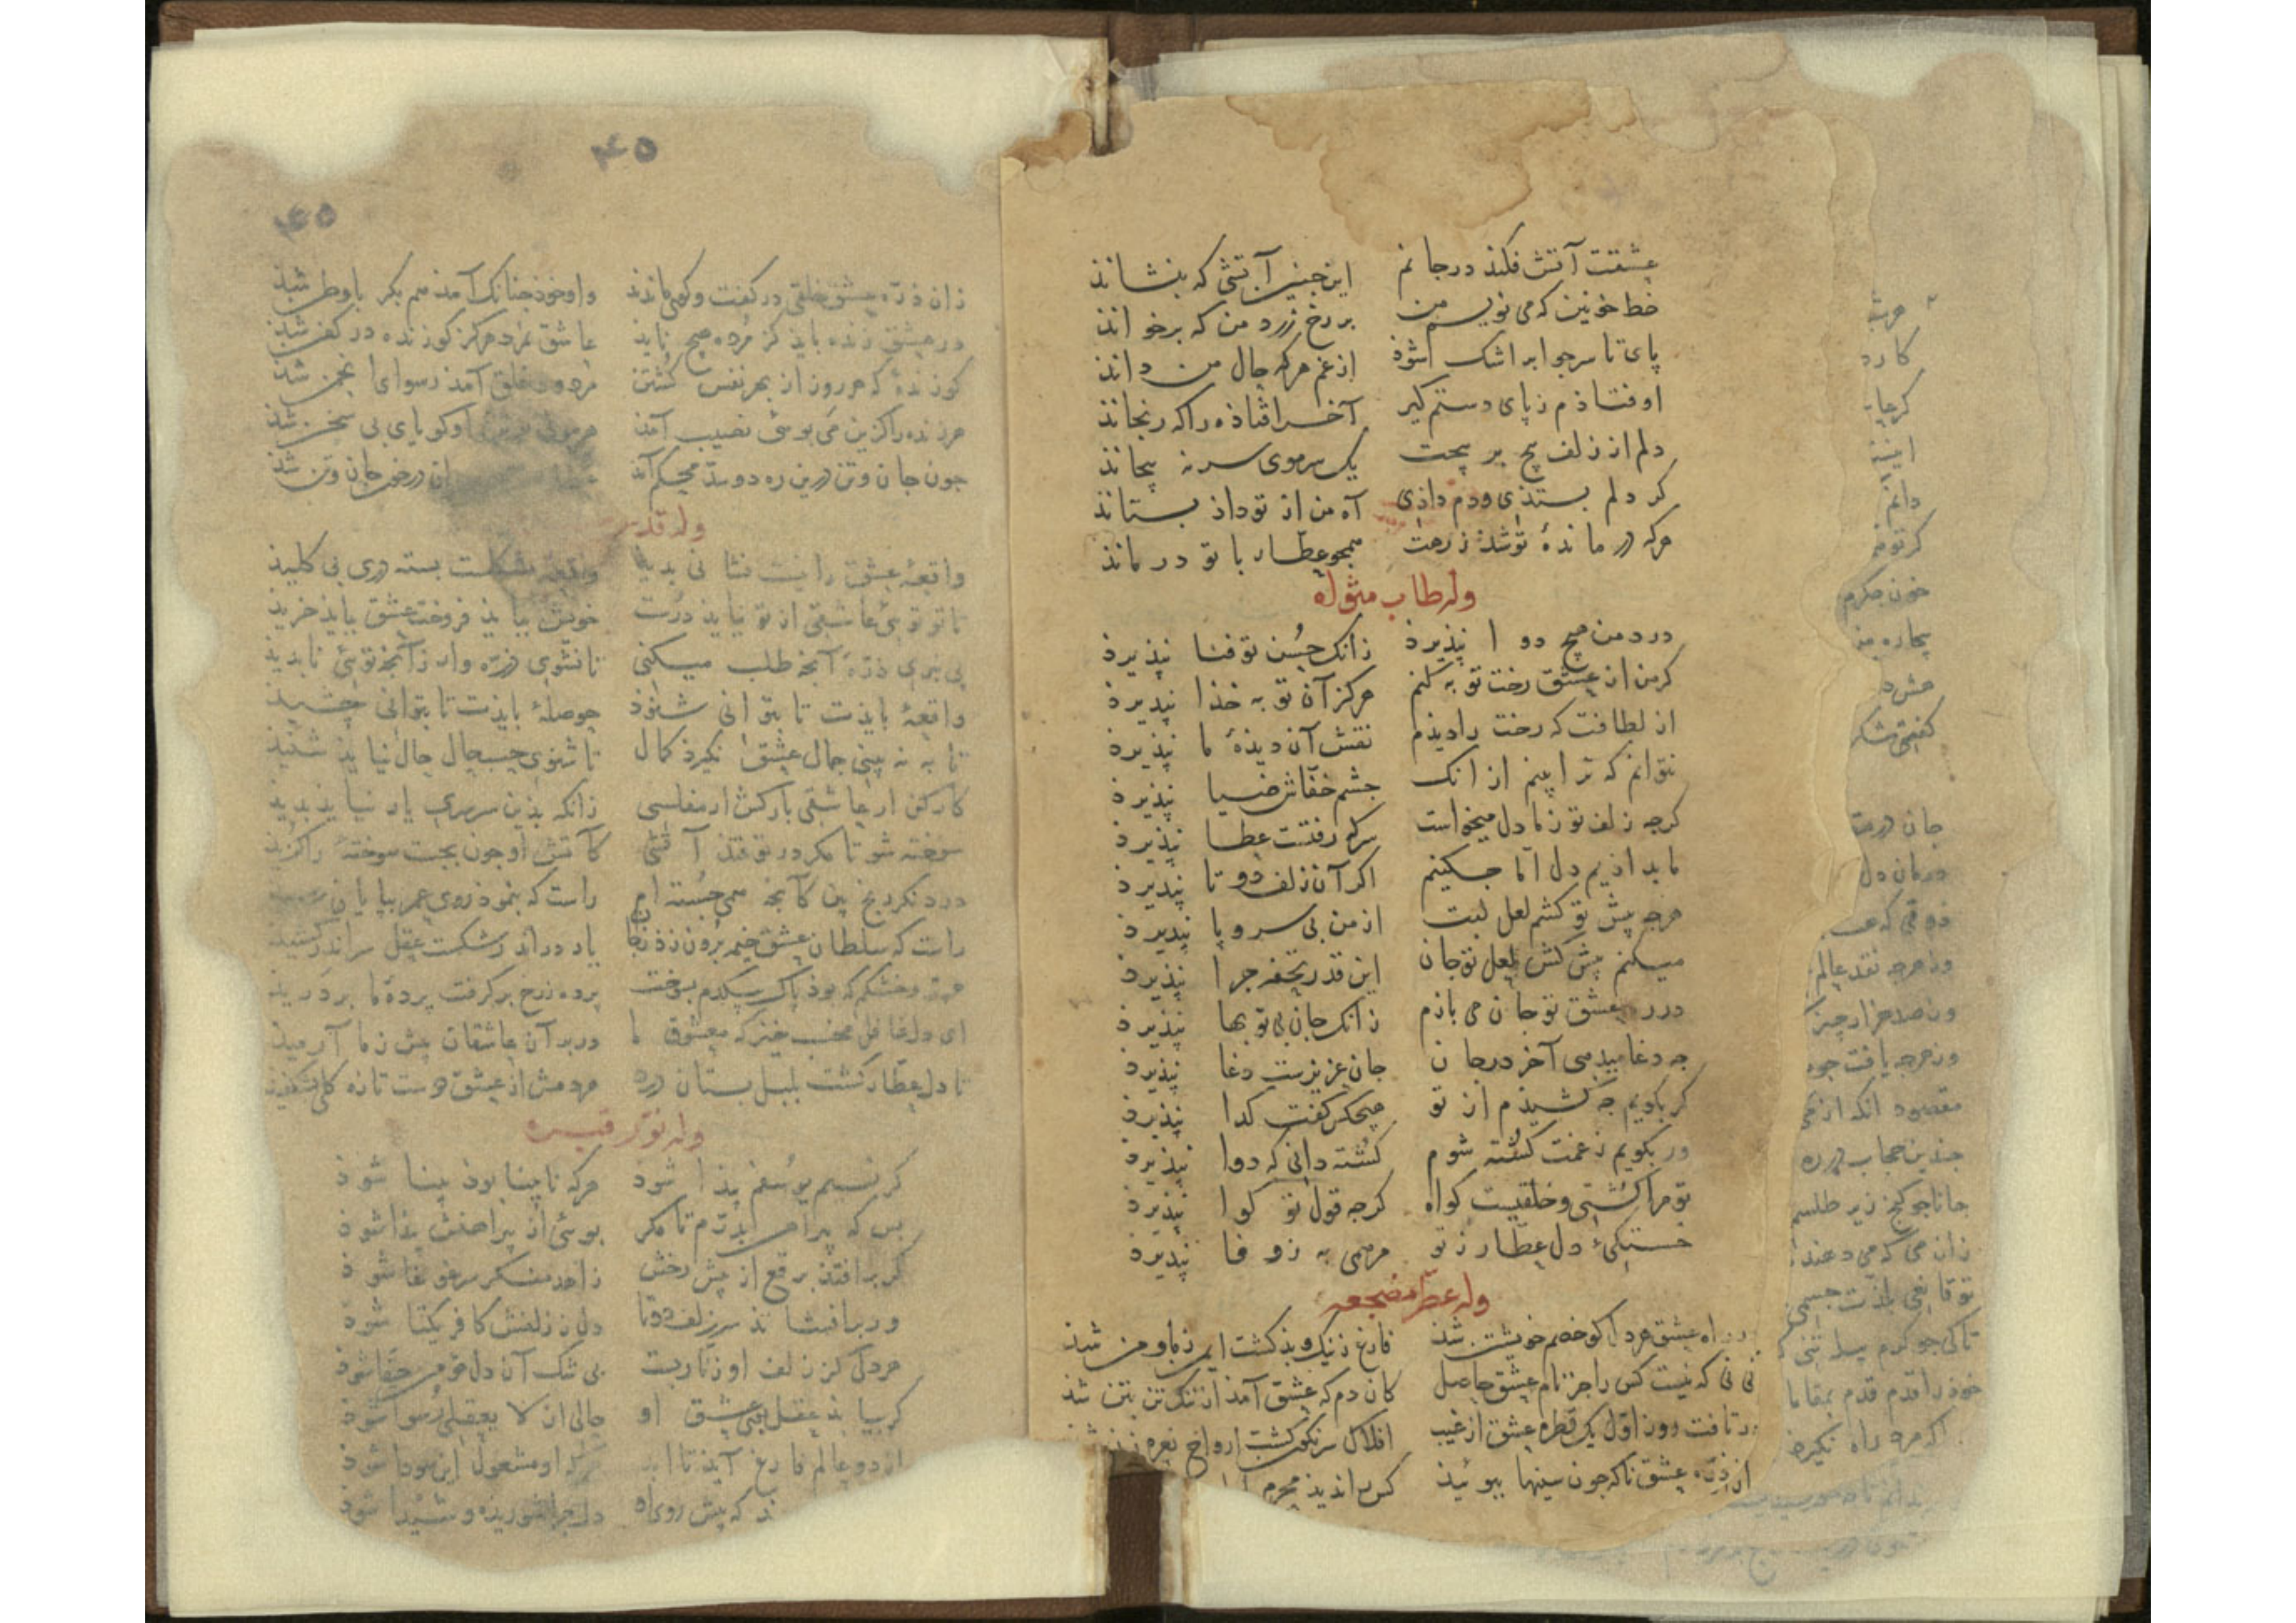 عشقت آتش فکند در جانم این چنین آتشی که بنشاند
خط خونین که می نویسم من بر رخ زرد من که برخواند
پای تا سر جو ابر اشک شوذ از غم هرکه حال من داند
اوفتاذم ز پای دستم کیر آخر افتاذه را که رنجاند
دلم از زلف پیچ بر پیچت یک سر موی سر نه پیچاند
کر دلم بستذی و دم داذی آه من از تو داذ بستاند
هرکه در ماندهٔ تو شذ نرهت همچو عطار با تو در ماند
وله طاب مثواه
درد من هیچ دوا نپذیرذ زانک حسن تو فنا نپذیرذ
کر من از عشق رخت توبه کنم هرکز آن توبه خذا نپذیرذ
از لطافت که رخت را دیذم نقش آن دیذهٔ ما نپذیرذ
نتوانم که ترا بینم از انک جشم خفاش ضیا نپذیرذ
کرجه زلف تو ز ما دل میخواست سر کرفتست عطا نپذیرذ
ما بداذیم دل اما جکنیم اکر آن زلف دو تا نپذیرذ
هرجه پیش تو کشم لعل لبت از من بی سر و پا نپذیرذ
میکنم پیش کش لعل تو جان این قدر تحفه جرا نپذیرذ
در ره عشق تو جان می بازم زانک جان بی تو بها نپذیرذ
جه دغا میدهی آخر در جان جان عزیزست دغا نپذیرذ
کر بکویم جه کشیذم از تو هیچکس کفت کدا نپذیرذ
ور بکویم ز غمت کشته شوم کشته دانی که دوا نپذیرذ
تو مرا کشتی و خلقیست کواه کرجه قول تو کوا نپذیرذ
خستکیٔ دل عطار ز تو مرهمی به ز وفا نپذیرذ
وله عطر مضجعه
در راه عشق هر دل کو خصم خویشتن شذ فارغ ز نیک و بذ کشت ایمن ز ما و من شذ
نی نی که نیست کس را جز نام عشق حاصل کان دم که عشق آمذ از ننک تن بتن شذ
در تافت روز اول یک قطره عشق از غیب افلاک سرنکون کشت ارواح نعره زن شذ
از ذره عشق ناکه جون سینها ببوئیذ کس را ندیذ محرم
۴۵
۴۵
زان ذره عشق خلقی در کفت و کوی ماندند وا و خوذ جنانک آمذ هم بکر با وطن شذ
در عشق زنده بایذ کز مرده هیچ نایذ عاشق نمرد هرکز کو زنده در کفن شذ
کو زندهٔ که هر روز از بهر نفس کشتن مردود خلق آمذ رسوای انجمن شذ
هر زنده را کزین می بوئی نصیب آمذ هر موی بر تنش او کویای بی سخن شذ
جون جان و تن درین ره دو بند محکم آمذ ان در خور جان و تن شذ
وله قدس
واقعهٔ عشق را نیست نشانی بدید واقعهٔ مشکلست بسته دری بی کلیذ
تا تو توئی عاشقی از تو نیایذ درست خویش ببایذ فروخت عشق ببایذ خریذ
پی نبری ذرهٔ آنجه طلب میکنی تا نشوی ذره وار زآنجه توئی نابدید
واقعهٔ بایذت تا بتوانی شنوذ حوصلهٔ بایذت تا بتوانی چشید
تا به نه بینی جمال عشق نکیرذ کمال تا شنوی حسب حال حال نیایذ شنیذ
کار کن ار عاشقی بار کش ار مفلسی زانکه بذین سرسری یار نیایذ بدید
سوخته شو تا مکر در تو فتذ آتشی کآتش او جون بجست سوخته را کزید
درد نکر رنج بین کآنجه همی جسته ام راست که بنموذ روی عمر بپایان رسید
راست که سلطان عشق خیمه برون زذ ز جان یار در اندر شکست عقل سر اندر کشید
هر تر و خشکم که بوذ پاک بیکدم بسوخت پرده ز رخ بر کرفت پردهٔ ما بر درید
ای دل غافل مخسب خیز که معشوق ما در بر آن عاشقان پیش ز ما آرمیذ
تا دل عطار کشت بلبل بستان درد هر دمش از عشق دوست تازه کلی بشکفید
وله نور قبره
کر نسیم یوسفم پیذا شوذ هرکه نابینا بوذ بینا شوذ
بس که پیراهن بدرم تا مکر بوئی از پیراهنش پیذا شوذ
کر برافتذ برقع از پیش رخش زاهد منکر سر غوغا شوذ
ور برافشاند سر زلف دوتا دل ز زلفش کافر یکتا شوذ
هر دل کز زلف او زنار بست بی شک آن دل مؤمن حقا شوذ
کر بیابذ عقل بوی عشق او حالی از لا یعقلی رسوا شوذ
از دو عالم فارغ آیذ تا ابد هرکه او مشغول این سودا شوذ
که پیش روی او دل جرا شوریذه و شیدا شوذ
کارد
دانم
خون جکرم
بیجاره من
کفتمش
درمان دل
ذوقی که
ور هرجه نقد عالم
ور صد هزار جیز
ور هرجه یافت جو
مقصود انکه از می
جندین حجاب در ره
جانا جو کنج زیر طلسم
زان می که می دهند
تو قانعی بلذت جسمی
تا کی جو کرم پیله تنی
خوذ را قدم قدم بمقاما
اکر مرد راه نکیرذ